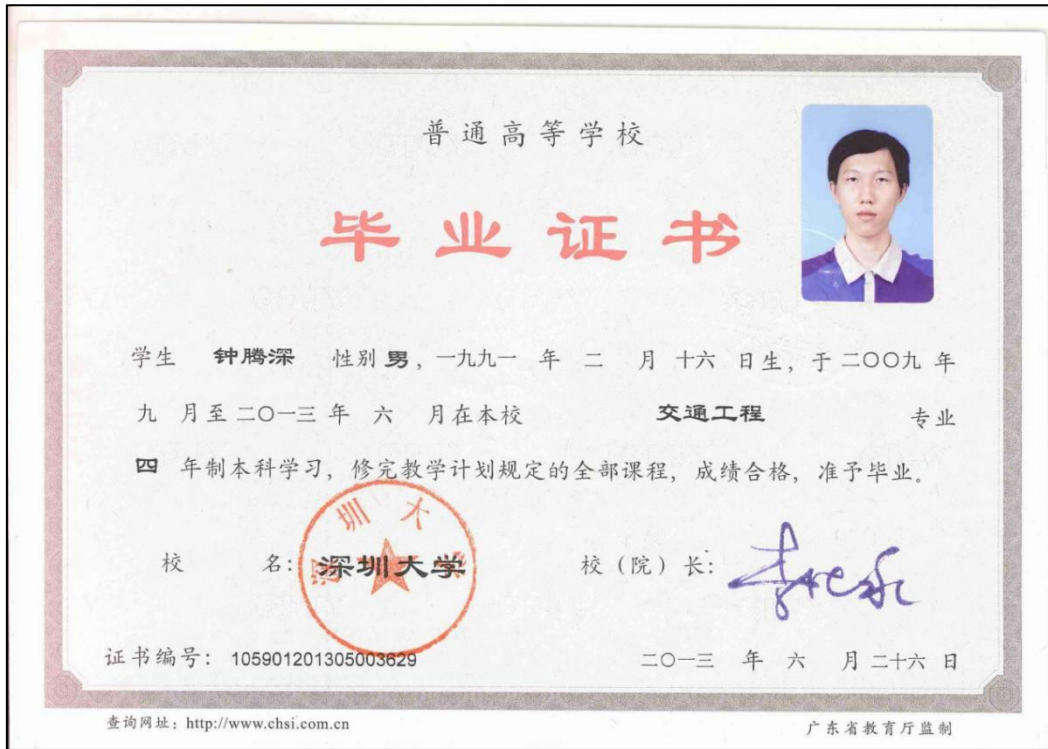 普通高等学校
毕业证书
学生 钟腾深 性别 男，一九九一 年 二 月 十六 日生，于 二〇〇九 年
九 月至 二〇一三 年 六 月在本校 交通工程 专业
四 年制本科学习，修完教学计划规定的全部课程，成绩合格，准予毕业。
校 名： 深圳大学 校（院）长：
深圳大学
证书编号： 105901201305003629 二〇一三 年 六 月 二十六 日
查询网址：http://www.chsi.com.cn 广东省教育厅监制